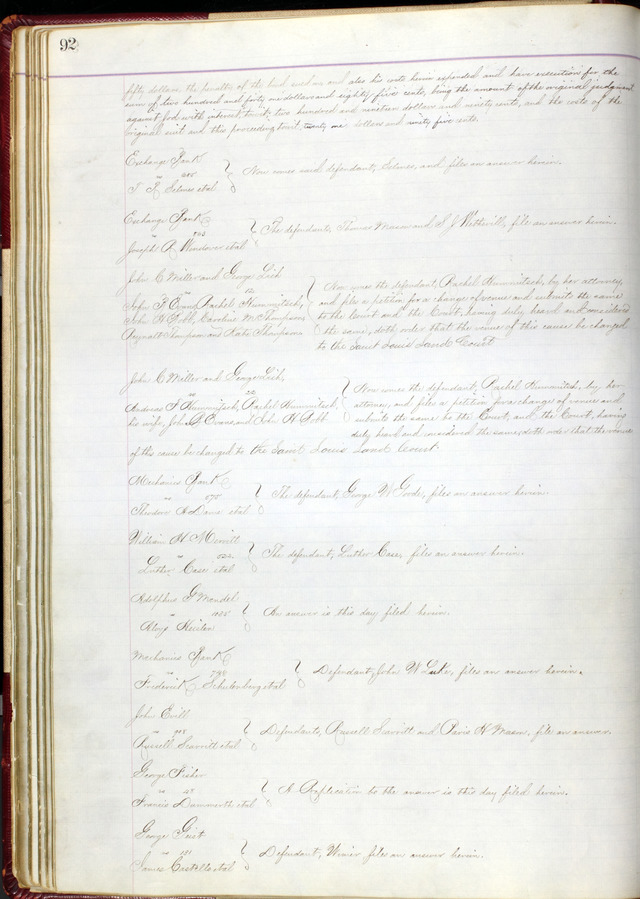 92
fifty dollars, the penalty of the bond sued on and also his costs herein expended and have execution for the
sum of two hundred and forty one dollars and eighty five cents, being the amount of the original judgment
against with interest two hundred and nineteen dollars and ninety cents, and the costs of the
original suit and this proceeding twenty one dollars and ninety five cents.
Exchange Bank
vs
T R Selmes etal } Now comes said defendant, Selmes, and files an answer herein.
Exchange Bank
Joseph R Windover etal } The defendants Thomas Mason and S J Wetherill, file an answer herein.
John C Miller and George
vs 12
John P Evans, Rachel
John H Tobb, Caroline M Thompson
Thompson and Kate Thompson
} Now comes the defendant, Rachel by her attorney,
and files a petition for a change of venue and submits the same
to the Court and the Court, having duly heard and considered
the same, doth order that the venue of this cause be changed
to the Saint Louis Land Court
John C Miller and George
vs
Andreas F Rachel
his wife, John P Evans, and John H Tobb
} Now comes the defendant, Rachel by her
attorney, and files a petition for a change of venue and
submits the same to the Court, and the Court, having
duly heard and considered the same, doth order that the venue
of this cause be changed to the Saint Louis Land Court
Mechanics Bank
vs
Theodore etal } The defendant, George W Goode, files an answer herein.
William H Merritt
vs
Luther Case etal } The defendant, Luther Case, files an answer herein.
Adolphus G Mandel
vs
Aloys } An answer is this day filed herein.
Mechanics Bank
vs
Frederick Schulenberg etal } Defendant, John W Luke, files an answer herein.
John Evill
vs
Russell Scarritt etal } Defendants, Russell Scarritt and Paris H Mason, file an answer.
George Fisher
vs 23
Francis etal } A Replication to the answer is this day filed herein.
George Geist
vs 181
James Castello etal } Defendant, files an answer herein.